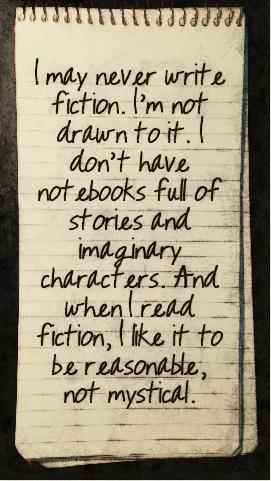 I may never write
fiction. I'm not
drawn to it. I
don't have
notebooks full of
stories and
imaginary
characters. And
when I read
fiction, I like it to
be reasonable,
not mystical.